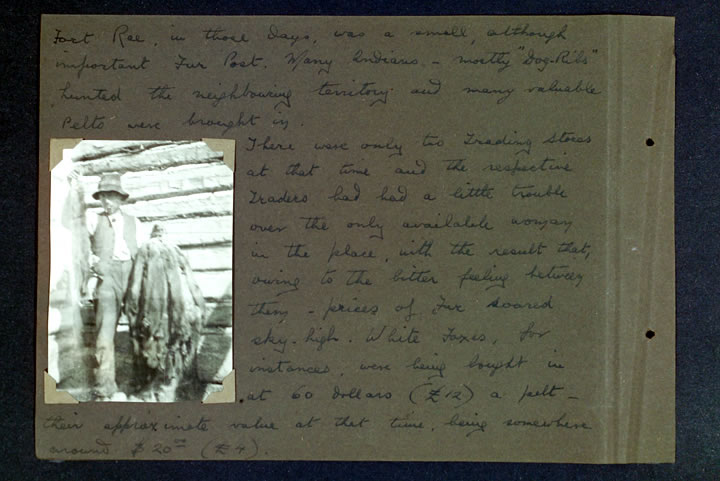 Fort Rae, in those days, was a small, although
important Fur Post. Many Indians, - mostly "Dog-Ribs"
hunted the neighbouring territory and many valuable
Pelts were brought in.
There were only two Trading Stores
at that time and the respective
Traders had had a little trouble
over the only available woman
in the place, with the result that,
owing to the bitter feeling between
them - prices of Fur soared
sky-high. White Foxes, for
instances, were being bought in
at 60 dollars (£12) a pelt -
their approximate value at that time, being somewhere
around $20.00 (£4).